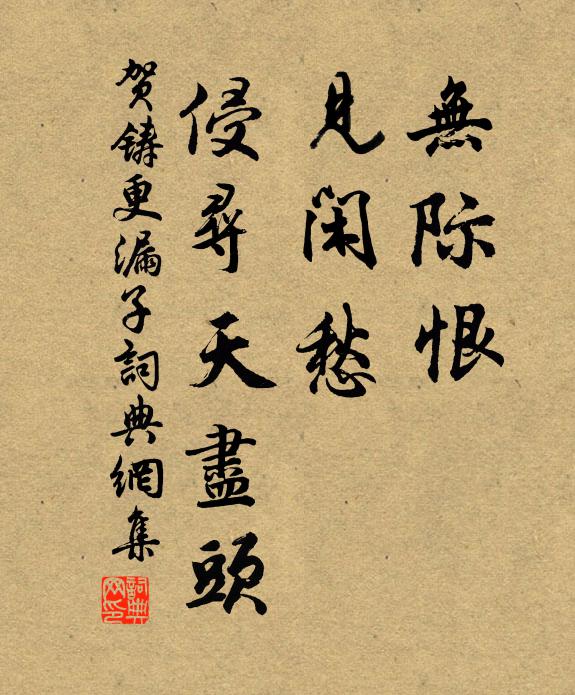 無际恨
見閑愁
侵尋天盡頭
贺鑄更漏子詞典網集
詞典网印